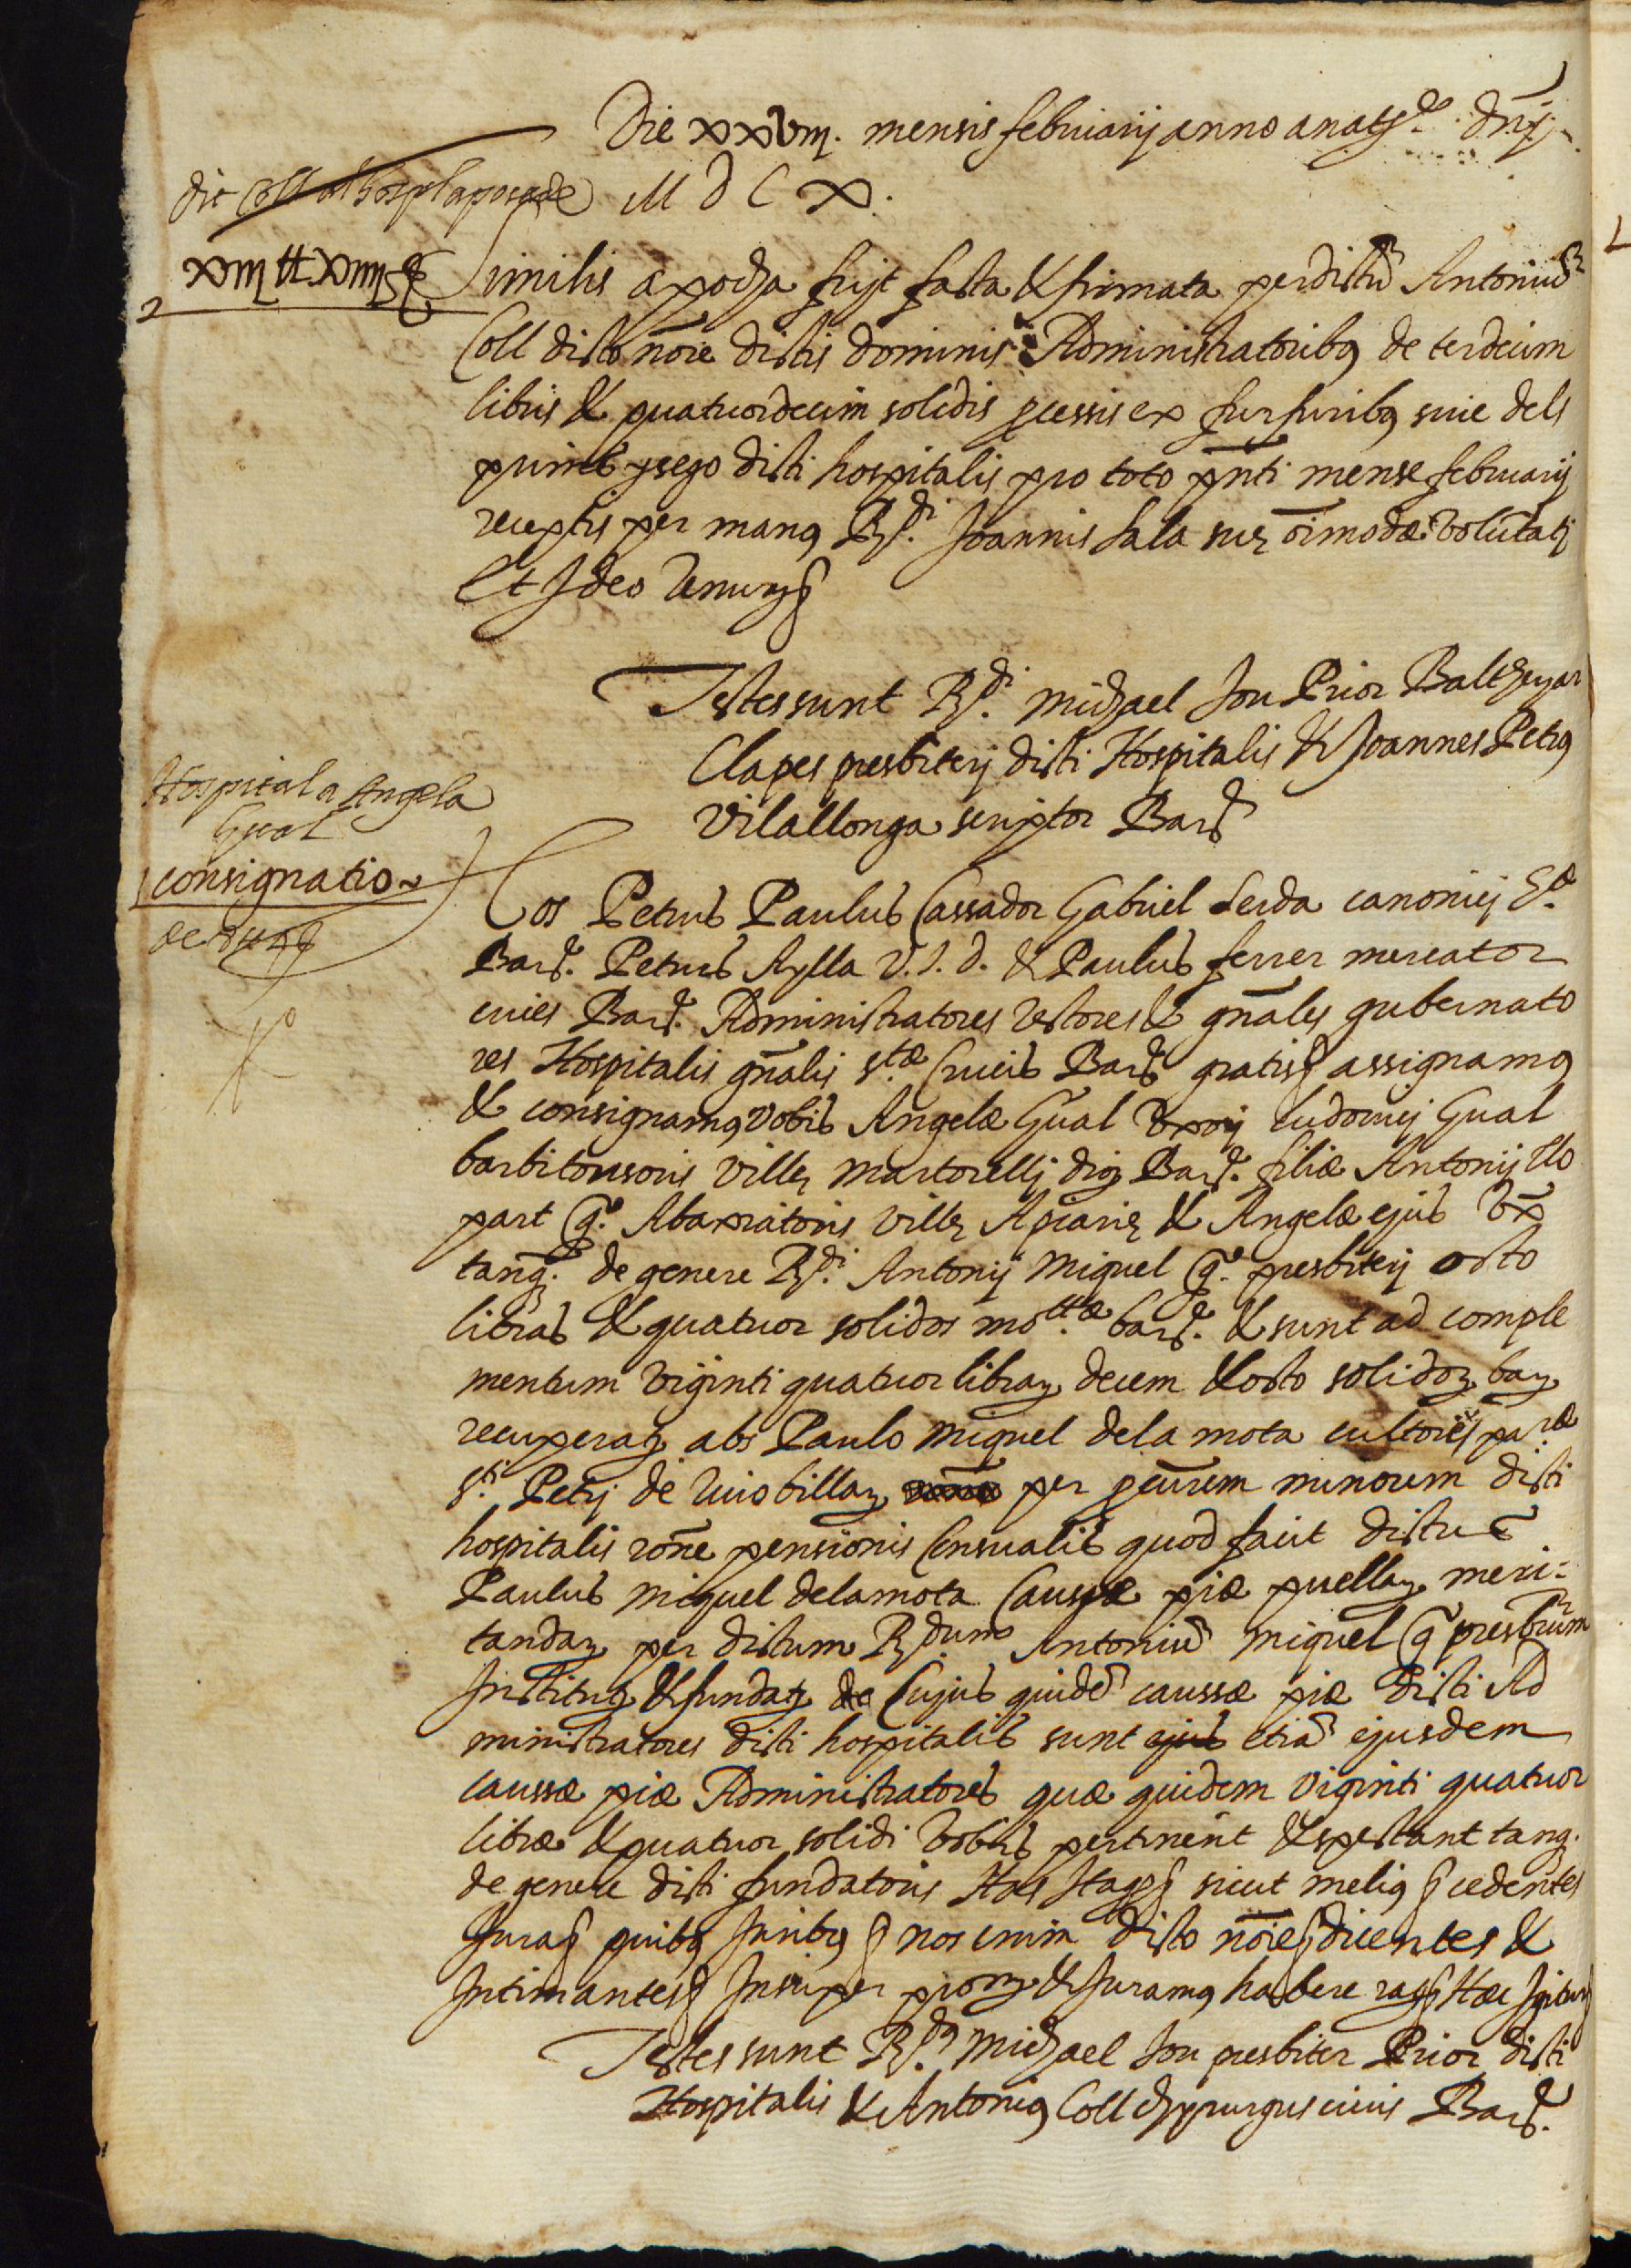 Die xxviij. mensis februarij anno a nat.e dnj
M D C X.
dit Coll al hospl apoca de
xiij ll xiiij s
Similis apocha fuit facta & firmata per dictū Antoniū
Coll dicto noīe dictis dominis Administratoribq de terdecim
libris & quatuordecim solidis pcessis ex furfuribq sive dels
primes y sego dicti hospitalis pro toto pnti mense februarij
receptis per manq Rdi Joannis Sala suę oīmodæ volūtati
Et Ideo Renung
Testes sunt R.di Michael Jou Prior Baltheyar
Clapes presbiterj dicti Hospitalis & Joannes Petrq
Vilallonga scriptor Barc
Hospital a Angela
Gual
consignatio
de
Nos Petrus Paulus Cassador Gabriel Serda canonicj Se
Barc. Petrus Aylla V.J.D. & Paulus ferrer mercator
cives Barc. Administratores rectores & gnāles gubernato
res Hospitalis gnālis Stæ Crucis Barc gratis assignamq
& consignamq vobis Angelæ Gual vxorj Ludovicj Gual
barbitonsoris villę Martorellj dioc Barc. filiæ Antonij Llo
part q. Abaxiatoris villę Apiarię & Angelæ ejus vx
tanq. de genere R.di Antonij Miquel q. presbiterj octo
libras & quatuor solidos mo.tæ barc. & sunt ad comple
mentum viginti quatuor librar decem & octo solidor bar
recuperat abs Paulo Miquel de la mota cultore paræ
Sti Petrj de Riusbillar per pcurem minorum dicti
hospitalis roñe pensionis Censualis quod facit dictus
Paulus Miquel dela mota Caussæ piæ puellar meri-
tandar per dictum R.dum Antoniū Miquel q presbrūm
Institut & fundat de Cujus quidē caussæ piæ dicti Ad
ministratores dicti hospitalis sunt ejus etiā ejusdem
caussæ piæ Administratores quæ quidem viginti quatuor
libræ & quatuor solidi vobis pertinent & spectant tanq.
de genere dicti fundatoris Has sicut meliq cedentes
Jura quibq Juribq nos enim dicto noīe dicentes &
Intimantes Insuper & Juramq habere Hæc Igitur
Testes sunt R.dq Michael Jou presbiter Prior dicti
Hospitalis & Antoniq Coll chyrurgus civis Barc.